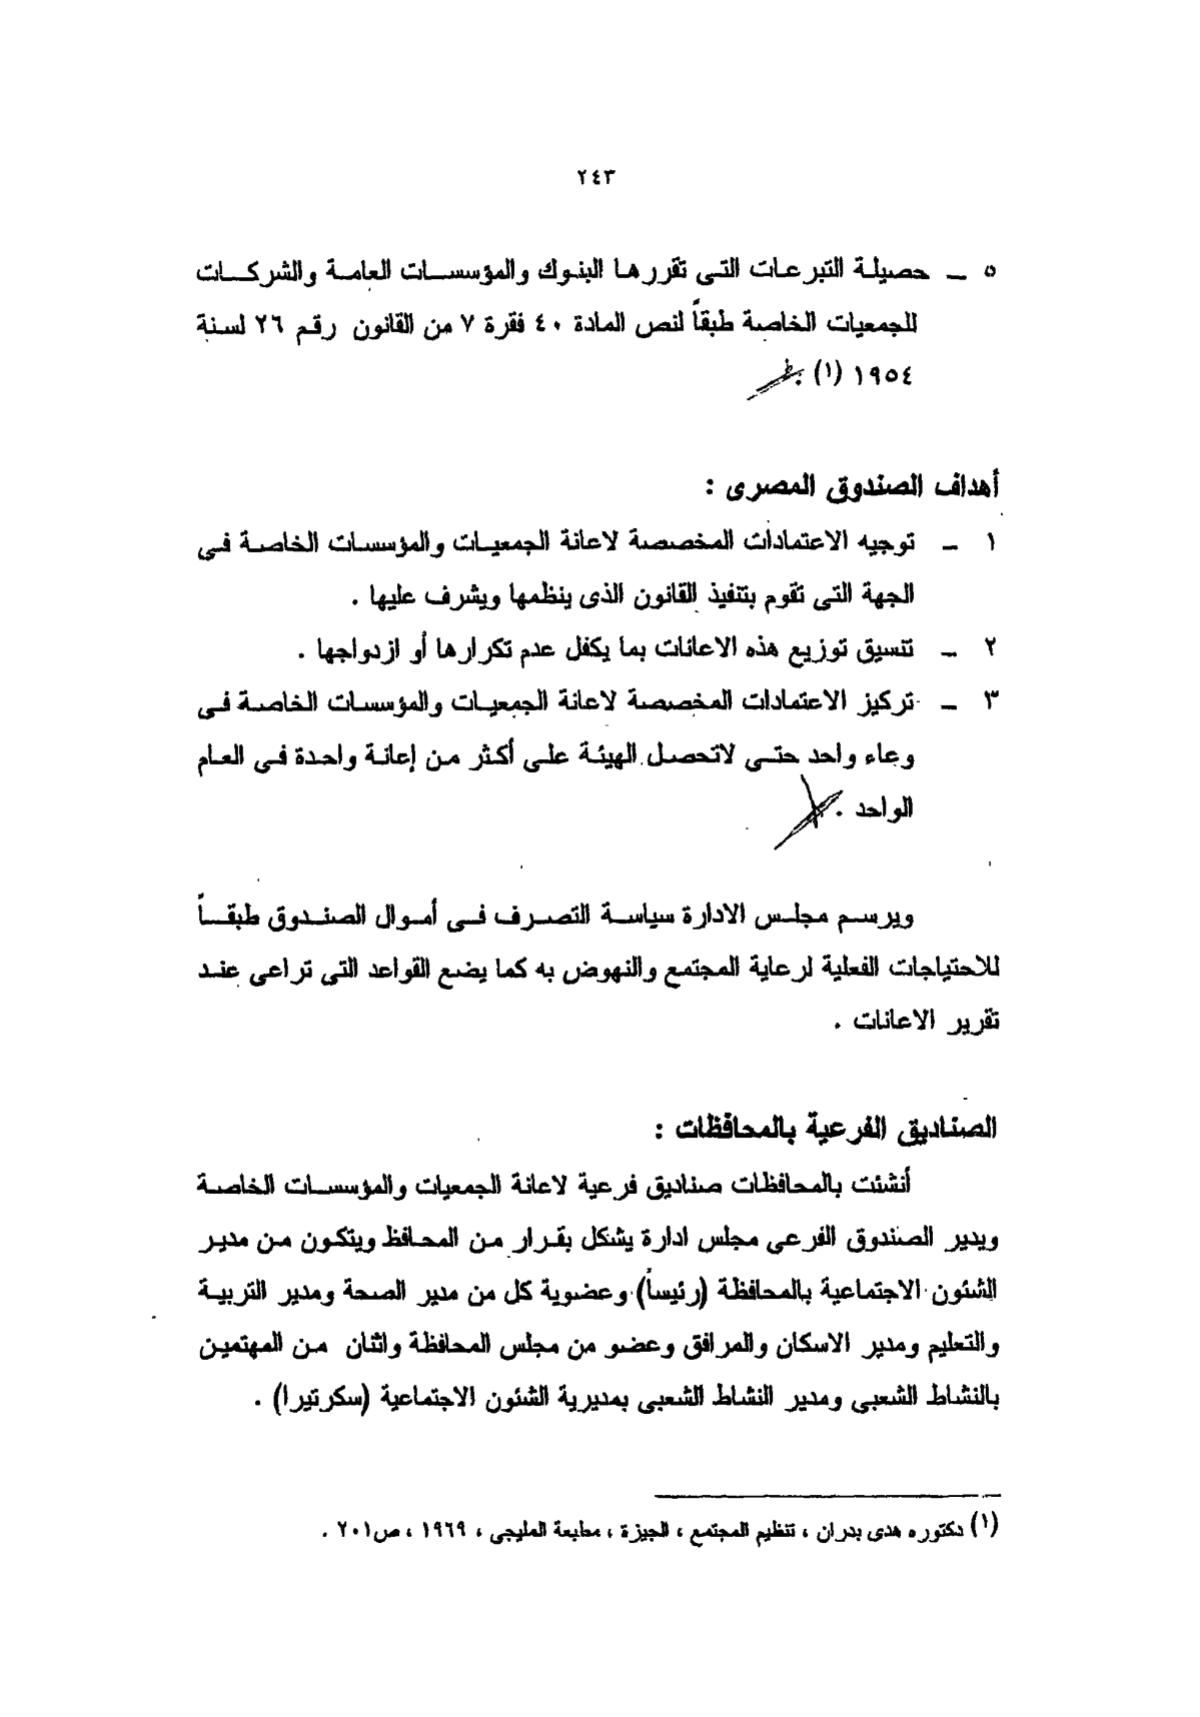 ٢٤٣
٥ ــ حصيلة التبرعات التى تقررها البنوك والمؤسسات العامة والشركات
للجمعيات الخاصة طبقاً لنص المادة ٤٠ فقرة ٧ من القانون رقم ٢٦ لسنة
١٩٥٤ (١) .
أهداف الصندوق المصرى :
١ ــ توجيه الاعتمادات المخصصة لاعانة الجمعيات والمؤسسات الخاصة فى
الجهة التى تقوم بتنفيذ القانون الذى ينظمها ويشرف عليها .
٢ ــ تنسيق توزيع هذه الاعانات بما يكفل عدم تكرارها أو ازدواجها .
٣ ــ تركيز الاعتمادات المخصصة لاعانة الجمعيات والمؤسسات الخاصة فى
وعاء واحد حتى لاتحصل الهيئة على أكثر من إعانة واحدة فى العام
الواحد .
ويرسم مجلس الادارة سياسة التصرف فى أموال الصندوق طبقاً
للاحتياجات الفعلية لرعاية المجتمع والنهوض به كما يضع القواعد التى تراعى عند
تقرير الاعانات .
الصناديق الفرعية بالمحافظات :
أنشئت بالمحافظات صناديق فرعية لاعانة الجمعيات والمؤسسات الخاصة
ويدير الصندوق الفرعى مجلس ادارة يشكل بقرار من المحافظ ويتكون من مدير
الشئون الاجتماعية بالمحافظة (رئيساً) وعضوية كل من مدير الصحة ومدير التربية
والتعليم ومدير الاسكان والمرافق وعضو من مجلس المحافظة واثنان من المهتمين
بالنشاط الشعبى ومدير النشاط الشعبى بمديرية الشئون الاجتماعية (سكرتيرا) .
(١) دكتوره هدى بدران ، تنظيم المجتمع ، الجيزة ، مطبعة المليجى ، ١٩٦٩ ، ص٢٠١ .